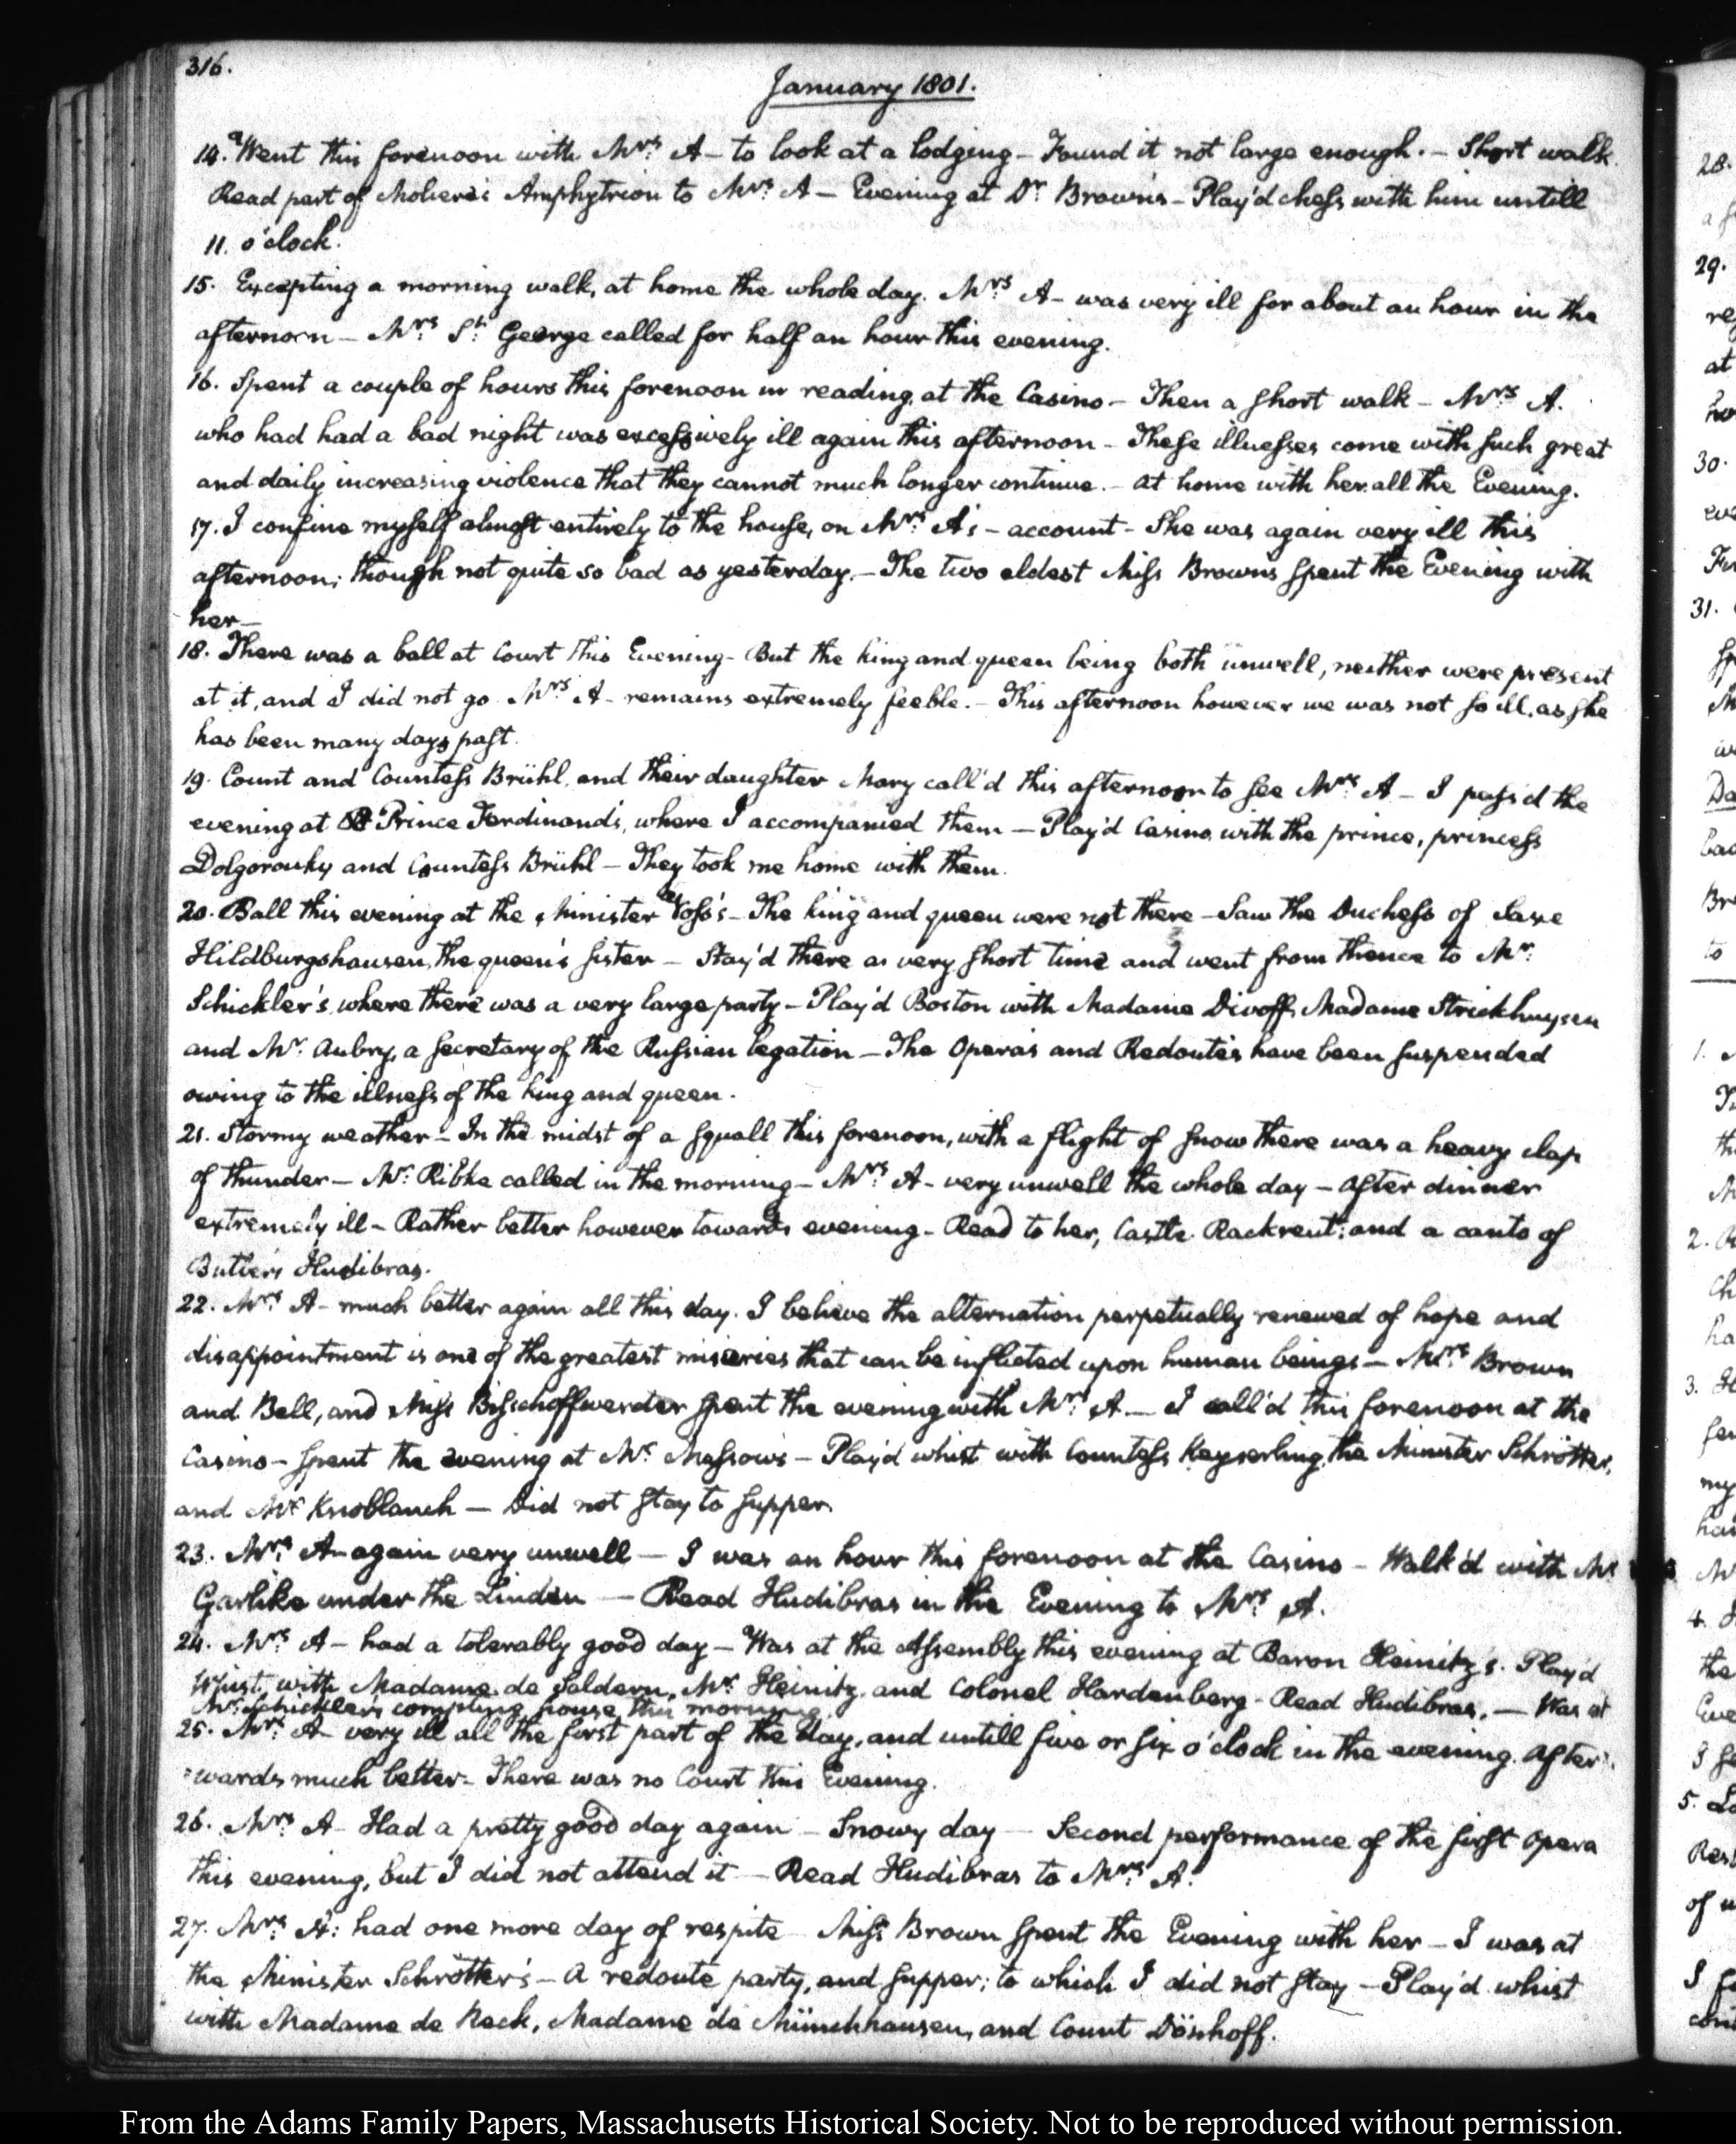 316.
January 1801.
14. Went this forenoon with Mrs. A— to look at a lodging— Found it not large enough.— Short walk.
Read part of Moliere's Amphytrion to Mrs. A— Evening at Dr. Brown's— Play'd chess with him untill
11. o'clock.
15. Excepting a morning walk, at home the whole day. Mrs. A— was very ill for about an hour in the
afternoon— Mrs. St. George called for half an hour this evening.
16. Spent a couple of hours this forenoon in reading, at the Casino— Then a short walk— Mrs. A.
who had had a bad night was excessively ill again this afternoon— These illnesses come with such great
and daily increasing violence that they cannot much longer continue.— At home with her all the Evening.
17. I confine myself almost entirely to the house, on Mrs. A's— account— She was again very ill this
afternoon; though not quite so bad as yesterday.— The two eldest Miss Browns spent the Evening with
her—
18. There was a ball at Court this Evening— But the king and queen being both unwell, neither were present
at it, and I did not go. Mrs. A— remains extremely feeble.— This afternoon however we was not so ill, as she
has been many days past.
19. Count and Countess Brühl, and their daughter Mary call'd this afternoon to see Mrs. A— I pass'd the
evening at Prince Ferdinand's, where I accompanied them— Play'd Casino with the prince, princess
Dolgorouky and Countess Brühl— They took me home with them.
20. Ball this evening at the Minister Voss's— The king and queen were not there— Saw the Duchess of Saxe
Hildburgshausen, the queen's sister— Stay'd there a very short time and went from thence to Mr.
Schickler's where there was a very large party— Play'd Boston with Madame Divoff, Madame Strickhuysen
and Mr. Aubry, a secretary of the Russian legation— The Opera's and Redoute's have been suspended
owing to the illness of the king and queen.
21. Stormy weather— In the midst of a squall this forenoon, with a flight of snow there was a heavy clap
of thunder— Mr. Ribke called in the morning— Mrs. A— very unwell the whole day— After dinner
extremely ill— Rather better however towards evening— Read to her, Castle Rackrent: and a canto of
Butler's Hudibras.
22. Mrs. A— much better again all this day. I believe the alternation perpetually renewed of hope and
disappointment is one of the greatest miseries that can be inflicted upon human beings— Mrs. Brown
and Bell, and Miss Bischoffwerder spent the evening with Mrs. A— I call'd this forenoon at the
Casino— Spent the evening at Mr. Massow's— Play'd whist with Countess Keyserling, the Minister Schrötter,
and Mr. Knoblauch— Did not stay to supper.
23. Mrs. A— again very unwell— I was an hour this forenoon at the Casino— Walk'd with Mr.
Garlike under the Linden— Read Hudibras in the Evening to Mrs. A.
24. Mrs. A— had a tolerably good day— Was at the Assembly this evening at Baron Heinitz's. Play'd
Whist, with Madame de Seldern, Mr. Heinitz, and Colonel Hardenberg— Read Hudibras.— Was at
Mr. Schickler's compting house this morning.
25. Mrs. A— very ill all the first part of the day, and untill five or six o'clock in the evening. After-
-wards much better— There was no Court this Evening.
26. Mrs. A— Had a pretty good day again— Snowy day— Second performance of the first Opera
this evening, but I did not attend it— Read Hudibras to Mrs. A.
27. Mrs. A: had one more day of respite— Miss Brown spent the Evening with her— I was at
the Minister Schrötter's— A redoute party, and supper; to which I did not stay— Play'd whist
with Madame de Reck, Madame de Münchhausen, and Count Dönhoff.
From the Adams Family Papers, Massachusetts Historical Society. Not to be reproduced without permission.